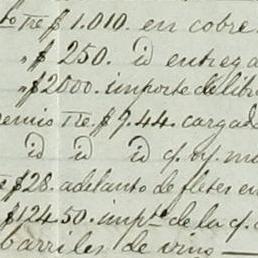 to Tre $ 1.010. en cobre
" $ 250. id entrega
" $2000. importe de libr
emio Tre $ 9.44. cargad
id id id q. oy. m
e $28. adelanto de fletes en
$124.50. impte de la q. d
barriles de vino